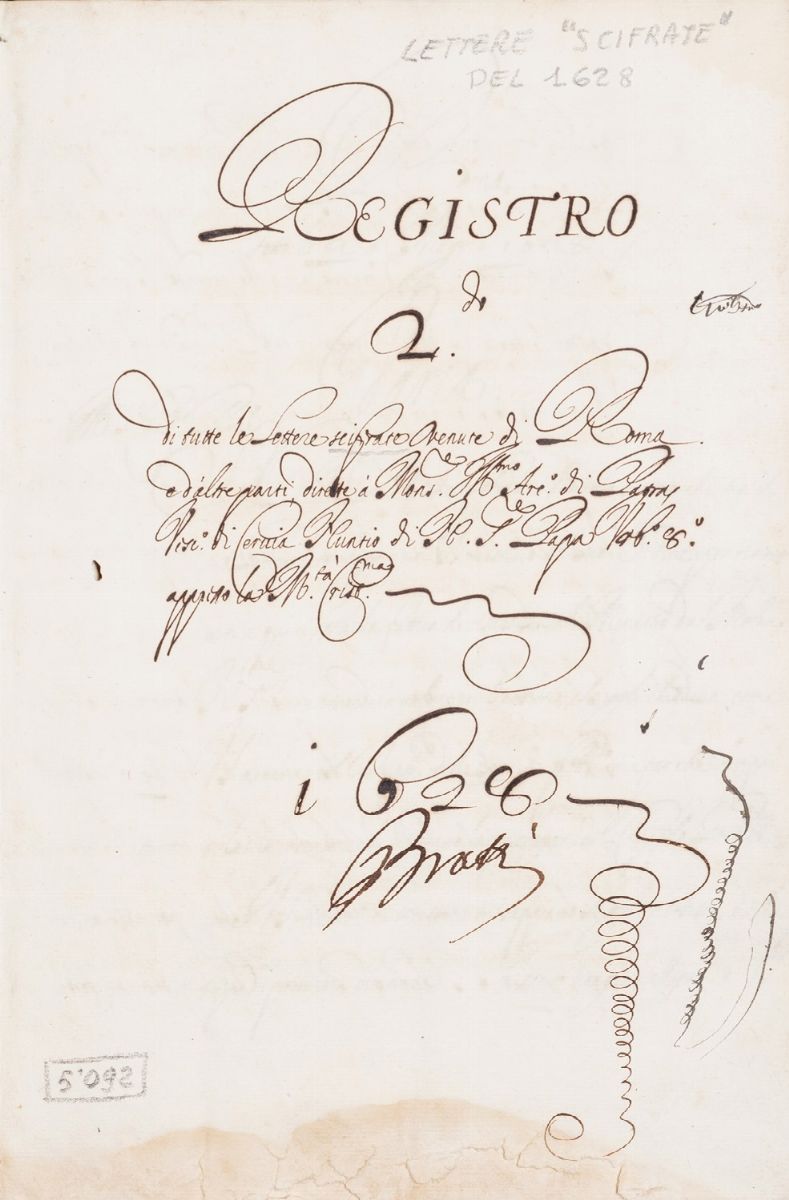 LETTERE "SCIFRATE"
DEL 1628
REGISTRO
2.do
di tutte le Lettere scifrate venute di Roma
e d'altre parti dirette à Mons.re Ill.mo Are.º di Patras
Vesc.º di Cervia Nuntio di N. S.re Papa Urb.º 8.º
appresso la M.tà Crist.ma
1628
5'092